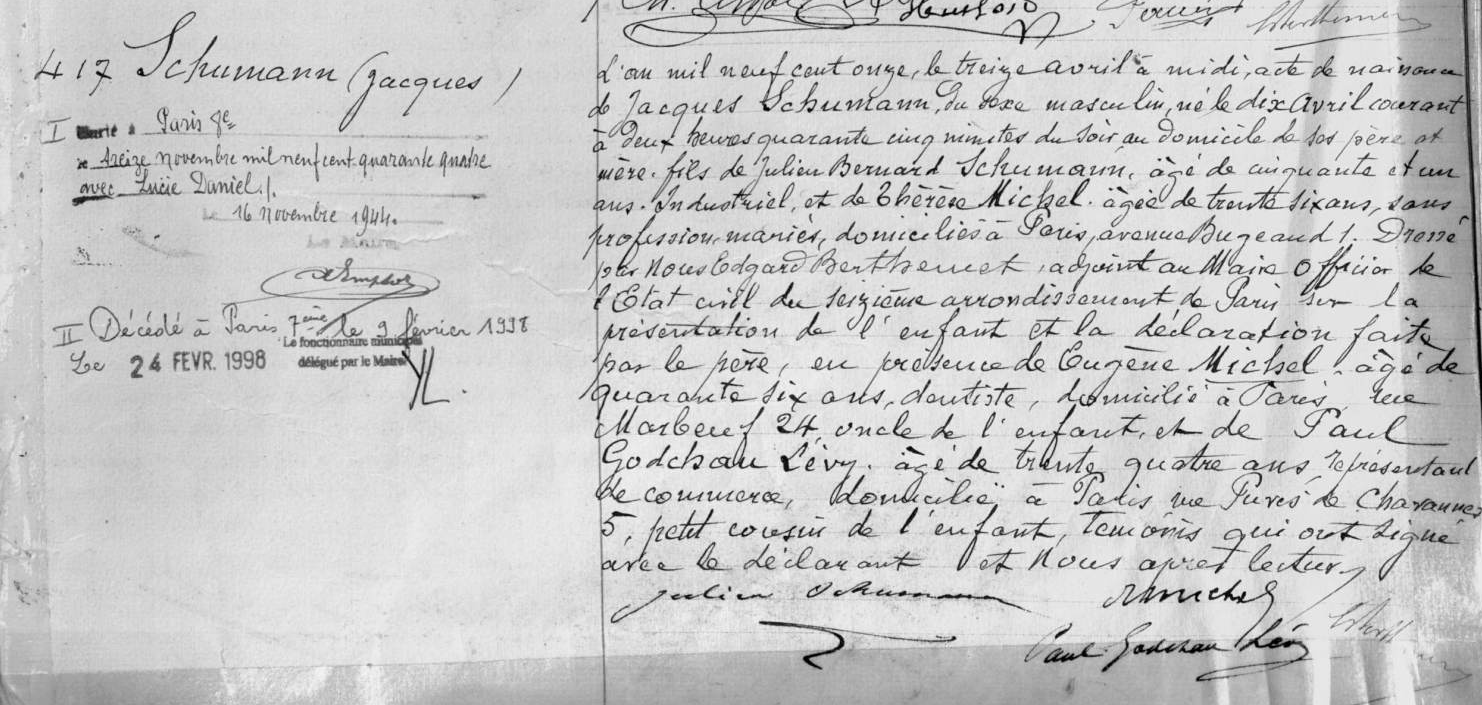 417 Schumann (Jacques)
I Marié à Paris 8e
le treize novembre mil neuf cent quarante quatre
avec Lucie Daniel ./.
Le 16 novembre 1944.
Le Maire
II Décédé à Paris 7ème le 9 février 1998
Le 24 FEVR. 1998
Le fonctionnaire municipal
délégué par le Maire
YL.
L'an mil neuf cent onze, le treize avril à midi, acte de naissance
de Jacques Schumann, du sexe masculin, né le dix Avril courant
à deux heures quarante cinq minutes du soir, au domicile de ses père et
mère. fils de Julien Bernard Schumann, âgé de cinquante et un
ans. Industriel, et de Thérèse Michel. âgée de trente six ans, sans
profession, mariés, domiciliés à Paris, avenue Bugeaud 1. Dressé
par Nous Edgard Berthemet, adjoint au Maire Officier de
l'Etat civil du seizième arrondissement de Paris sur la
présentation de l'enfant et la déclaration faite
par le père, en présence de Eugène Michel. âgé de
quarante six ans, dentiste, domicilié à Paris rue
Marbeuf 24, oncle de l'enfant, et de Paul
Godchau Lévy. âgé de trente quatre ans, représentant
de commerce, domicilié à Paris rue Puvis de Chavannes
5, petit cousin de l'enfant, témoins qui ont signé
avec le déclarant et Nous après lecture
Julien Schumann
Paul Godchau Lévy